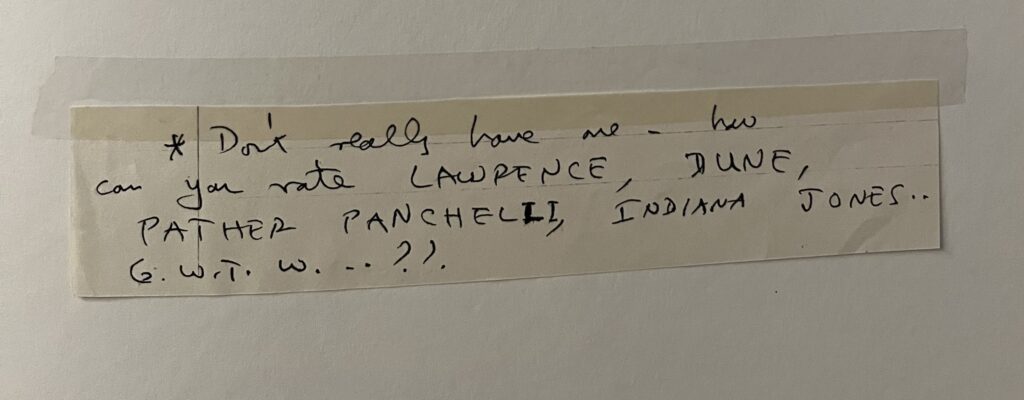 * Don't really have one - how
can you rate LAWRENCE, DUNE,
PATHER PANCHELLI, INDIANA JONES..
G.W.T.W. ...??.